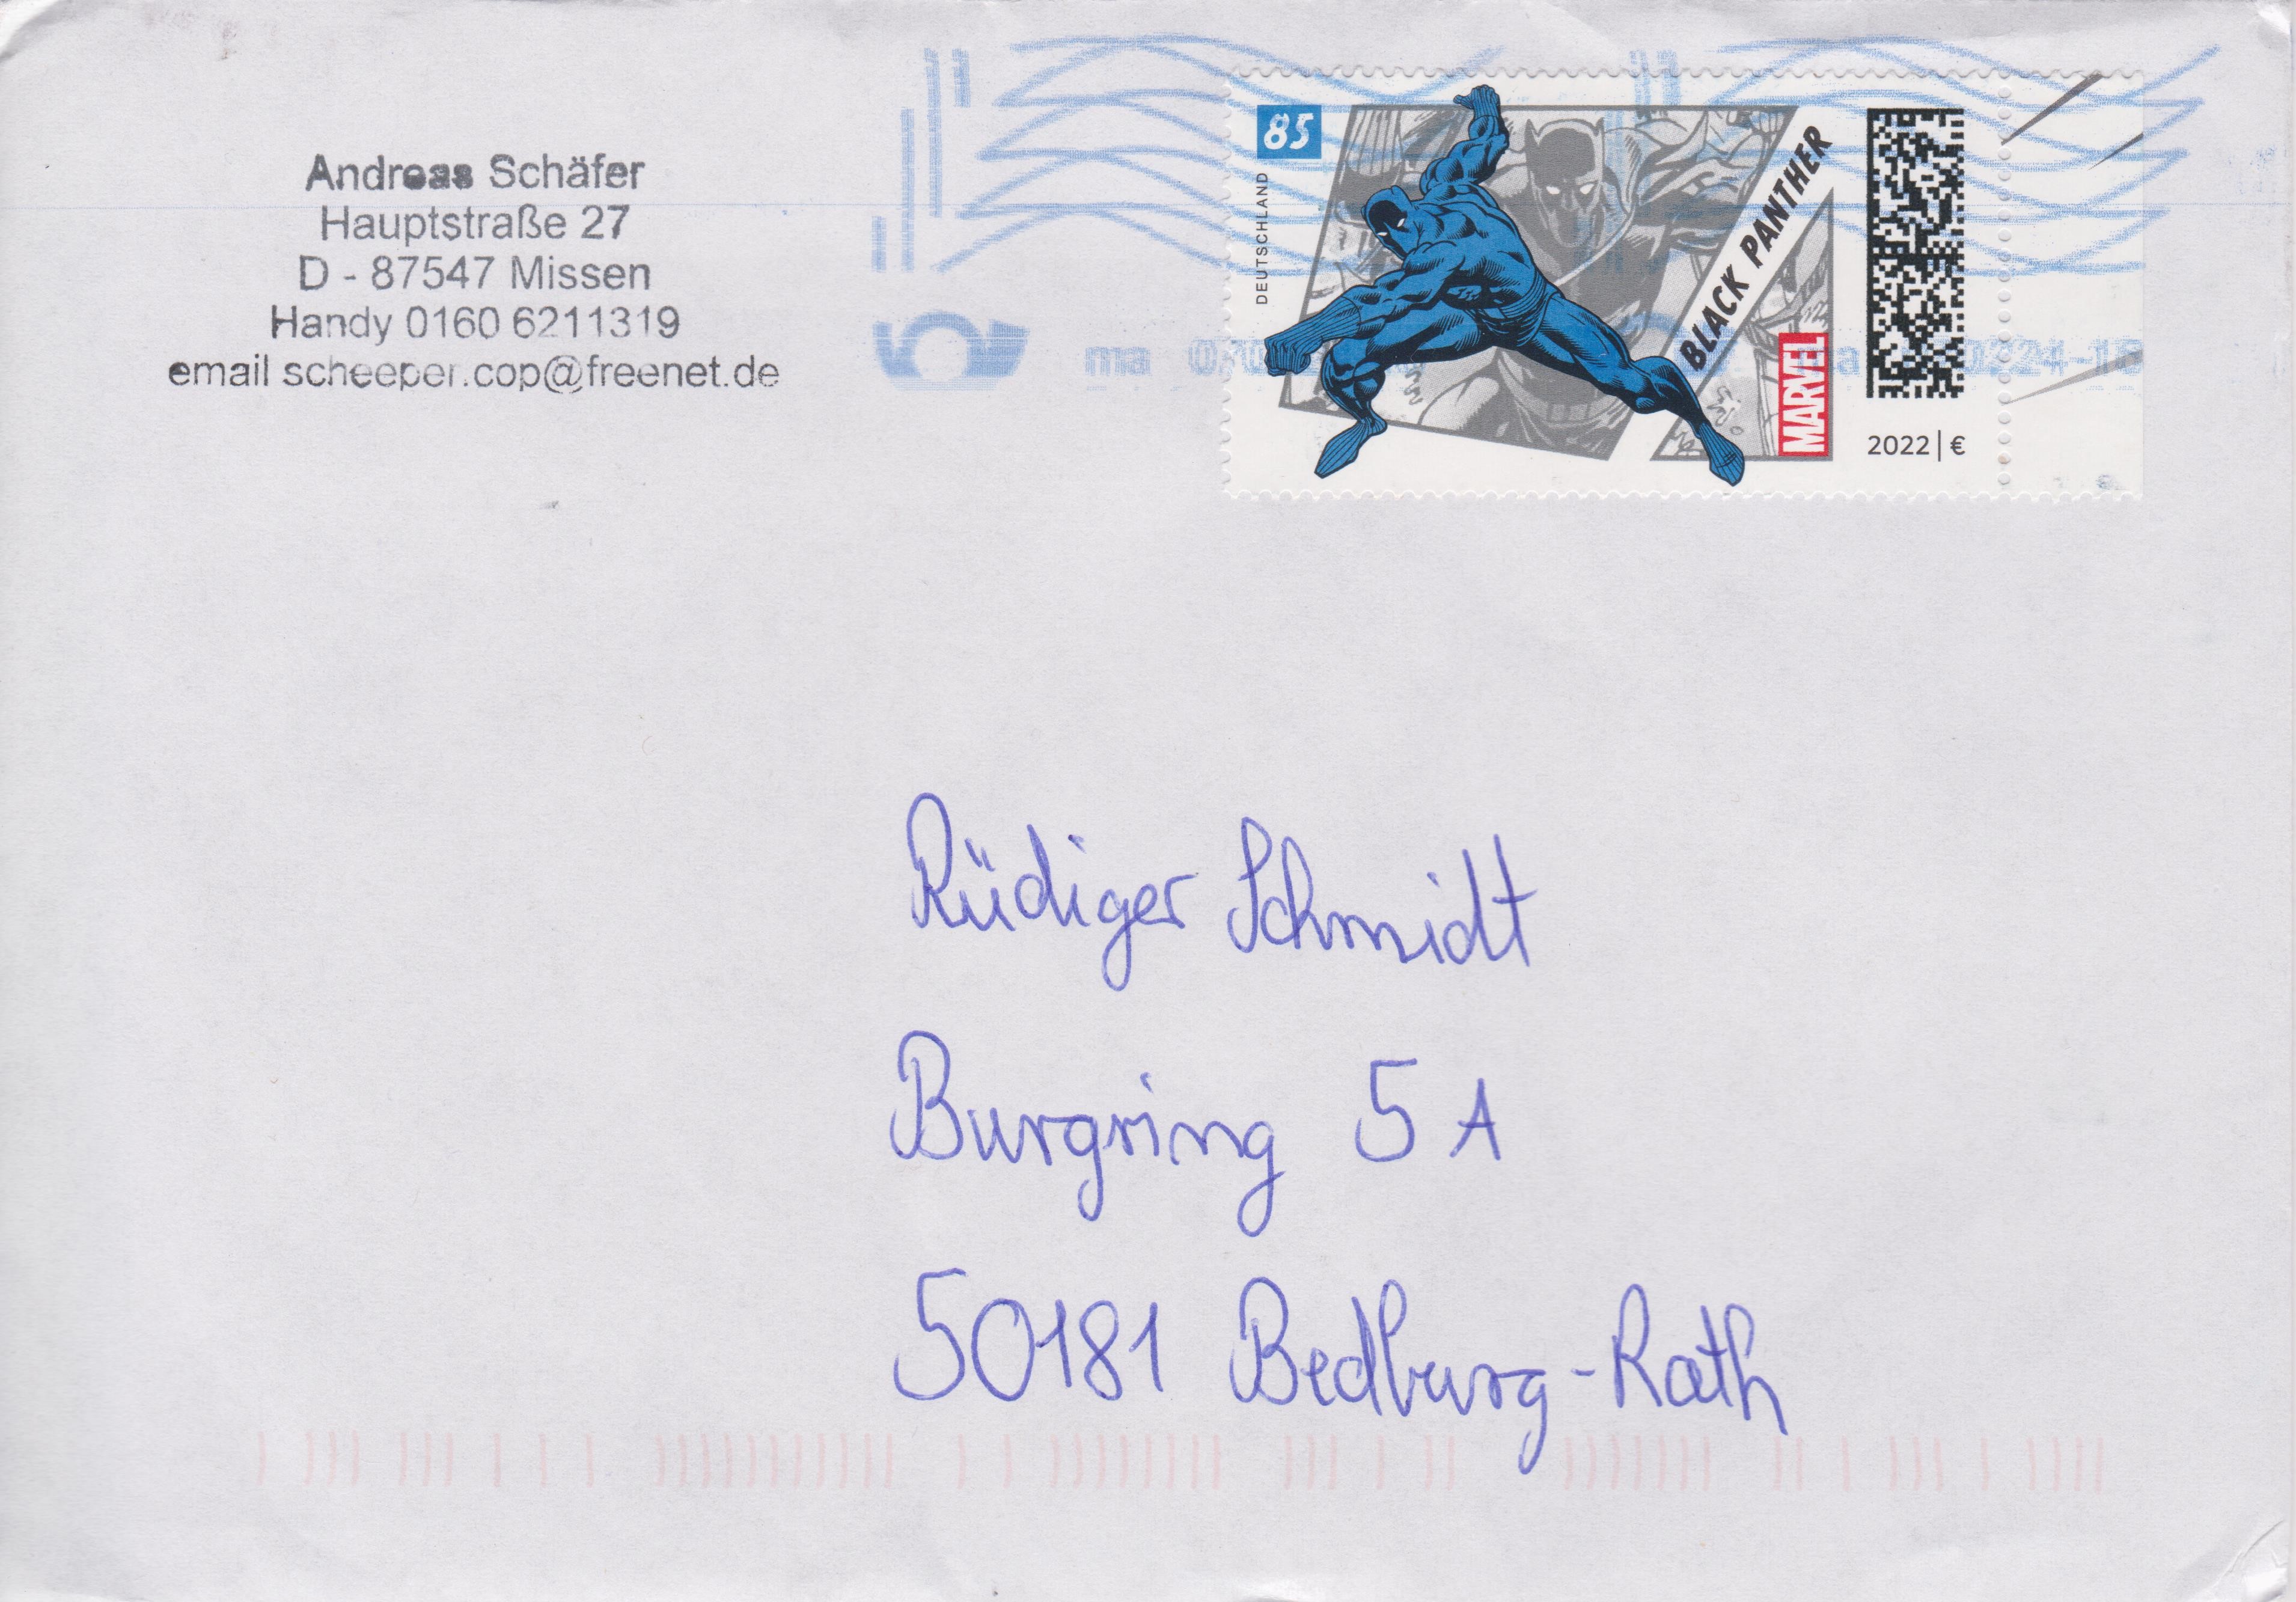 Andreas Schäfer
Hauptstraße 27
D - 87547 Missen
Handy 0160 6211319
email scheeper.cop@freenet.de
85
DEUTSCHLAND
BLACK PANTHER
MARVEL
2022 | €
ma
Rüdiger Schmidt
Burgring 5 A
50181 Bedburg-Rath